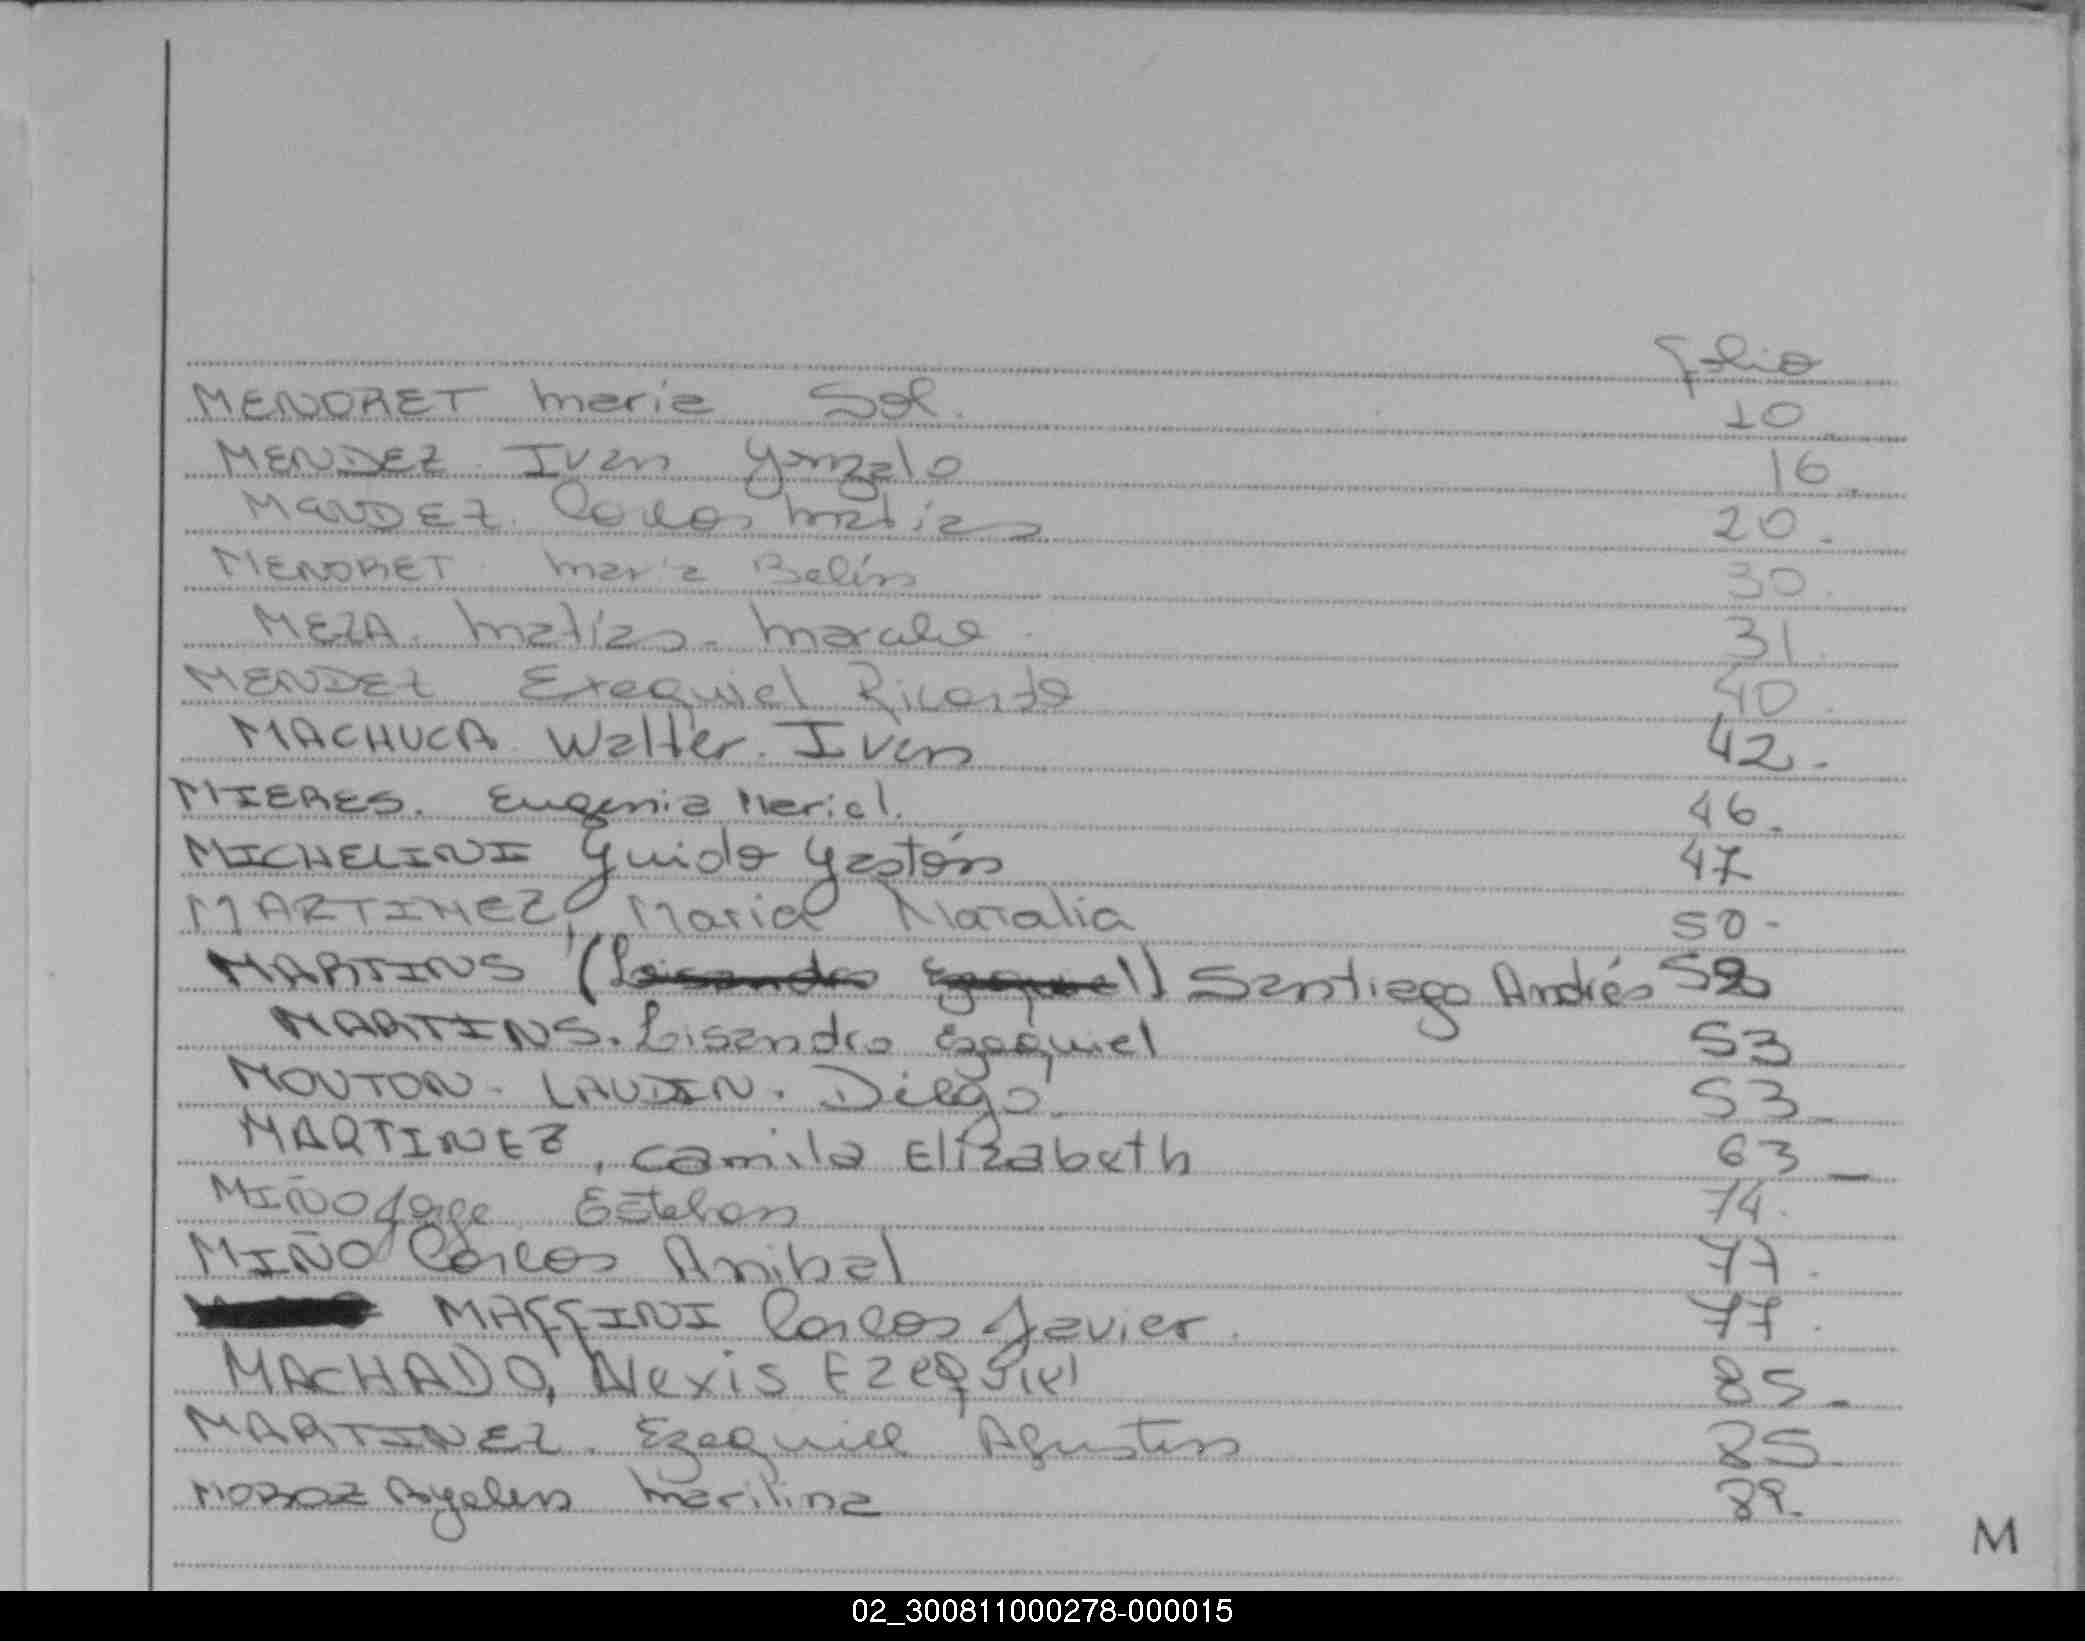 folio
MENDRET Maria Sol. 10
MENDEZ. Ivan Gonzalo 16.
MENDEZ. Carlos Matias 20.
MENDRET Maria Belén 30.
MEZA. Matías. 31.
MENDEZ Exequiel Ricardo 40.
MACHUCA Walter. Ivan 42.
MIERES. Eugenia Mariel. 46.
MICHELINI Guido Gastón 47
MARTINEZ, Maria Natalia 50.
MARTINS (Lisandro Ezequiel) Santiago Andrés
MARTINS. Lisandro Ezequiel 53
MOUTON. LAUDIN. Diego. 53
MARTINEZ, Camila Elizabeth 63
MIÑO Jorge Esteban 74.
MIÑO Carlos Anibal 77.
MAFFINI Carlos Javier. 77.
MACHADO, Alexis Ezequiel 85
MARTINEZ. Ezequiel Agustin 85
MOROZ Ayelen Marilina 89.
M
02_300811000278-000015